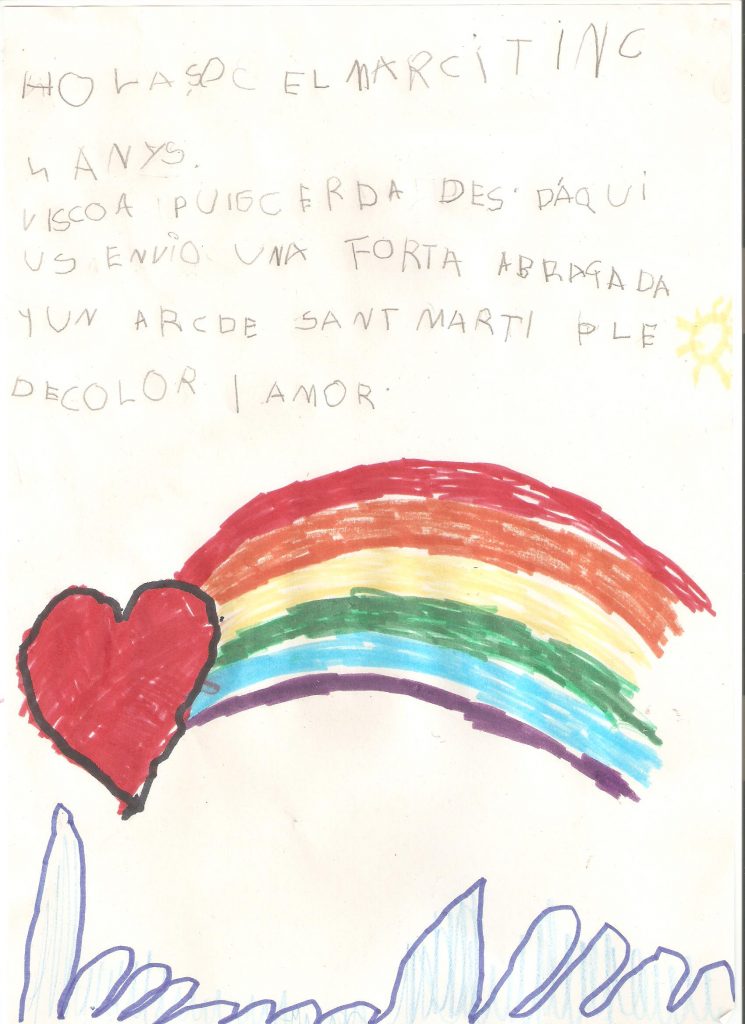 HOLA SOC EL MARC I TINC
4 ANYS.
VISCO A PUIGCERDA DES. D'AQUI
US ENVIO UNA FORTA ABRAÇADA
Y UN ARC DE SANT MARTI PLE
DE COLOR I AMOR.